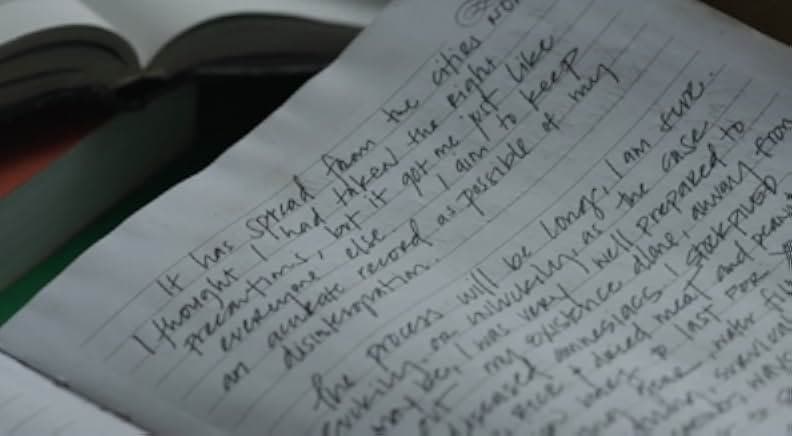 It has spread from the cities now
I thought I had taken the right
precautions, but it got me just like
everyone else. I aim to keep
an accurate record as possible of my
disintegration.
The process will be long, I am sure.
luckily, or unluckily, as the case
may be, I was very well prepared to
my existence alone, away from
diseased amnesiacs. I stockpiled
rice & dried meat and
bars to last for
gear, water
survival
ways